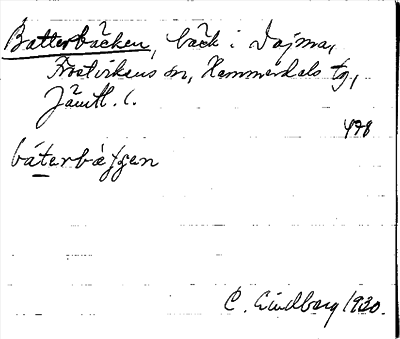 Batterbäcken, bäck i Dajma,
Frostvikens sn, Hammerdals tg,
Jämtl. l.
498
báterbàggen
C. Lindberg 1930.